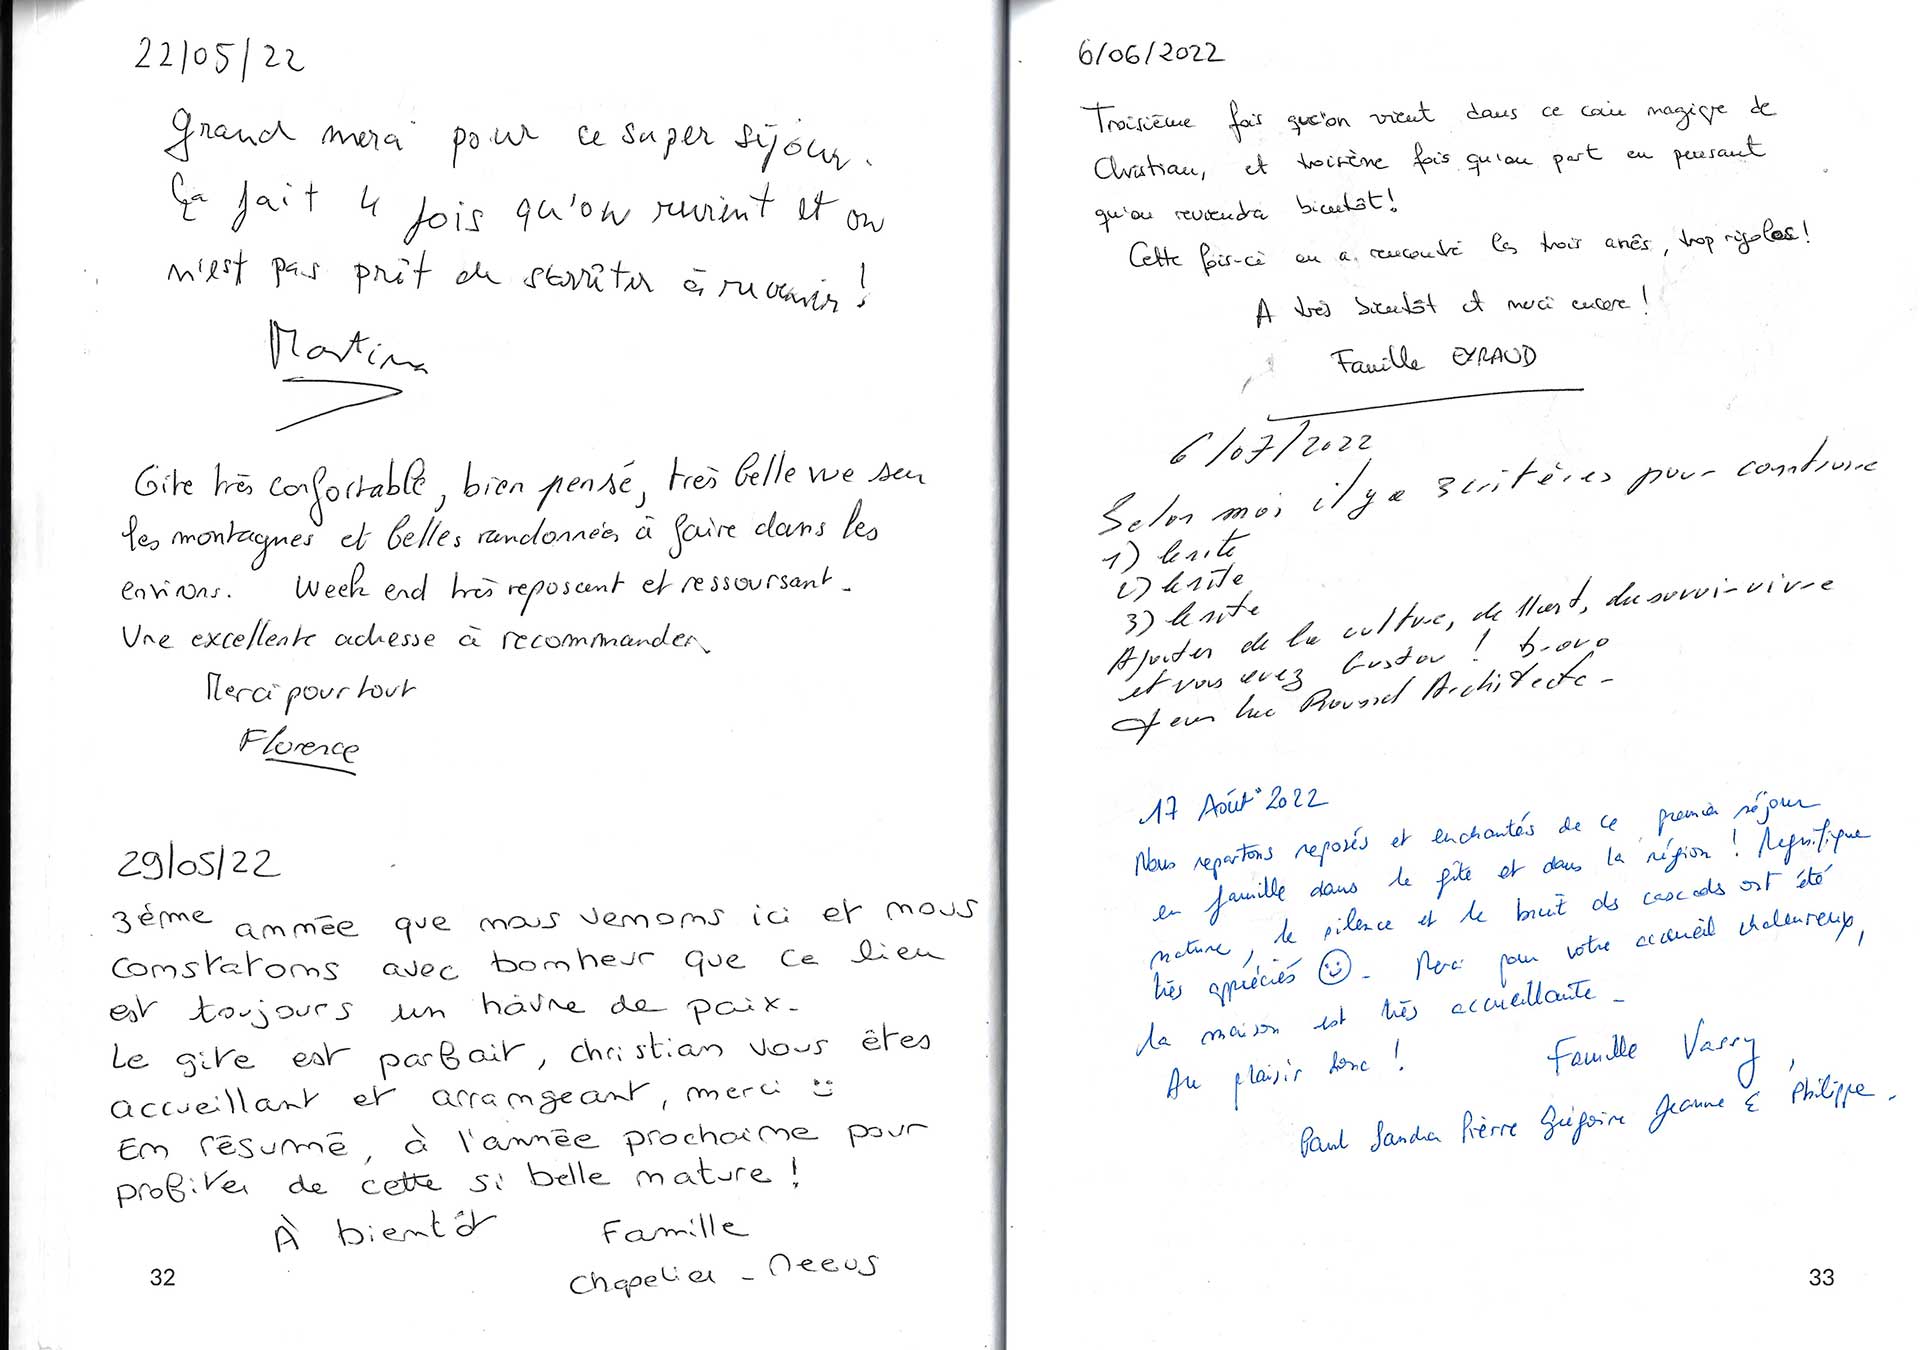 22/05/22
Grand merci pour ce super séjour.
Ça fait 4 fois qu'on revient et on
n'est pas prêt de s'arrêter à revenir !
Martina
Gite très confortable, bien pensé, très belle vue sur
les montagnes et belles randonnées à faire dans les
environs. Week end très reposant et ressoursant.
Une excellente adresse à recommander.
Merci pour tout
Florence
29/05/22
3ème année que nous venons ici et nous
constatons avec bonheur que ce lieu
est toujours un hâvre de paix.
Le gite est parfait, christian vous êtes
accueillant et arrangeant, merci
En résumé, à l'année prochaine pour
profiter de cette si belle nature !
À bientôt Famille
Chapelier - Neeus
32
6/06/2022
Troisième fois qu'on vient dans ce coin magique de
Christian, et troisième fois qu'on part en pensant
qu'on reviendra bientôt !
Cette fois-ci on a rencontré les trois anês, trop rigolos !
A très bientôt et merci encore !
Famille EYRAUD
6/07/2022
Selon moi il y a 3 critères pour construire
1) le site
2) le site
3) le site
Ajouter de la culture, de l'art, du savoir-vivre
et vous avez Gustav ! bravo
Jean Luc Architecte -
17 Août 2022
Nous repartons reposés et enchantés de ce premier séjour
en famille dans le gîte et dans la région ! Magnifique
nature, le silence et le bruit des cascades ont été
très appréciés. Merci pour votre accueil chaleureux,
la maison est très accueillante -
Au plaisir donc !
Famille Vassy,
Paul Sandra Pierre Grégoire Jeanne & Philippe.
33